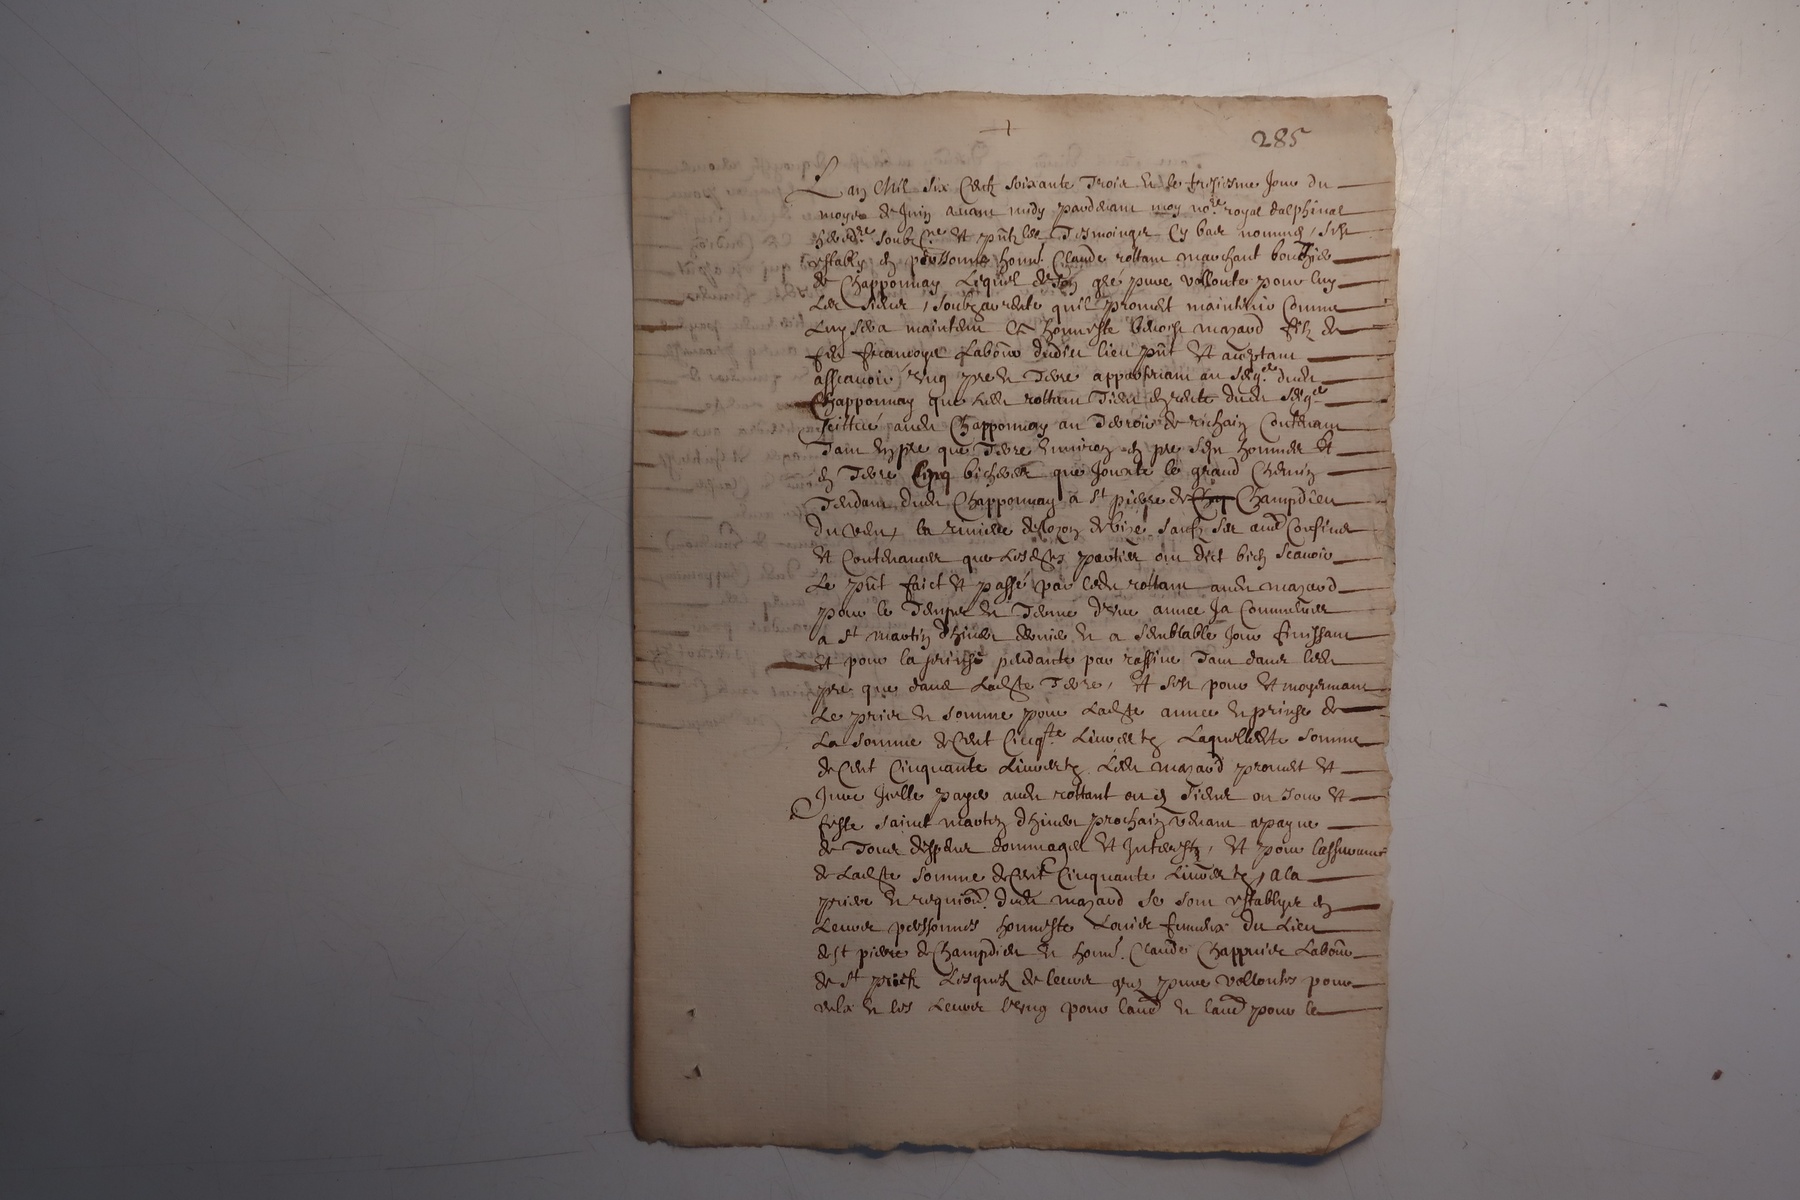 285
Lan Mil six Centz soixante Trois et le tresiesme Jour du
moys de Juin avant midy pardevant moy no.re royal dalphinal
hered.re soubz.ne et pñtz les Tesmoings Cy bas nommes, sest
estably en personne hon.e Claude rottam marchant bouchier
de Chapponnay Lequel de son gré pure vollonte pour luy
Les siens, soubzarrente quil promet maintenir Comme
Luy sera maintenu a honneste benoist mazard filz de
feu francoys Labour dudict lieu pñt et acceptant
asscavoir ung pre et Terre appartenant au seig.r dudit
Chapponnay que Ledit rottam Tient en rente dudit seig.r
scittué audit Chapponnay au Terroir de richain Contenant
Tant en pre que Terre environ en pre sept hommes et
en Terre Cinq bicherees que Jouxte le grand Chemin
Tendant dudit Chapponnay a st pierre de Champdieu
du vent, la riviere de lozon de bize sauf ses aud Confins
et Contenances que Lesdtes parties ont dict bien scavoir
Le pñt faict et passé par ledit rottam audit mazard
pour le Temps et Terme dune annee Ja Commencee
a st martin dhiver dernier et a semblable Jour finissant
et pour la prinse pendante par rassine Tant dans ledit
pre que dans Ladte Terre, et sest pour et moyennant
Le pris et somme pour Ladte annee et prinse de
La somme de Cent Cinq.te Livres tz Laquelledte somme
de Cent Cinquante Livres tz Ledit mazard promet et
Jure Jcelle payer audit rottant ou es siens ou Jour et
feste saint martin dhiver prochain venant a payne
de Tous despens dommages et Jnterestz, et pour lassurance
de Ladte somme de Cent Cinquante Livres tz, a la
priere et requion. dudit mazard se sont establys en
Leurs personnes honneste Louis du Lieu
de st pierre de Champdieu et hon.e Claude Chappuis Labour
de st priest Lesquelz de leurs grez pure vollontes pour
eulx et les Leurs lung pour laud et laud pour le